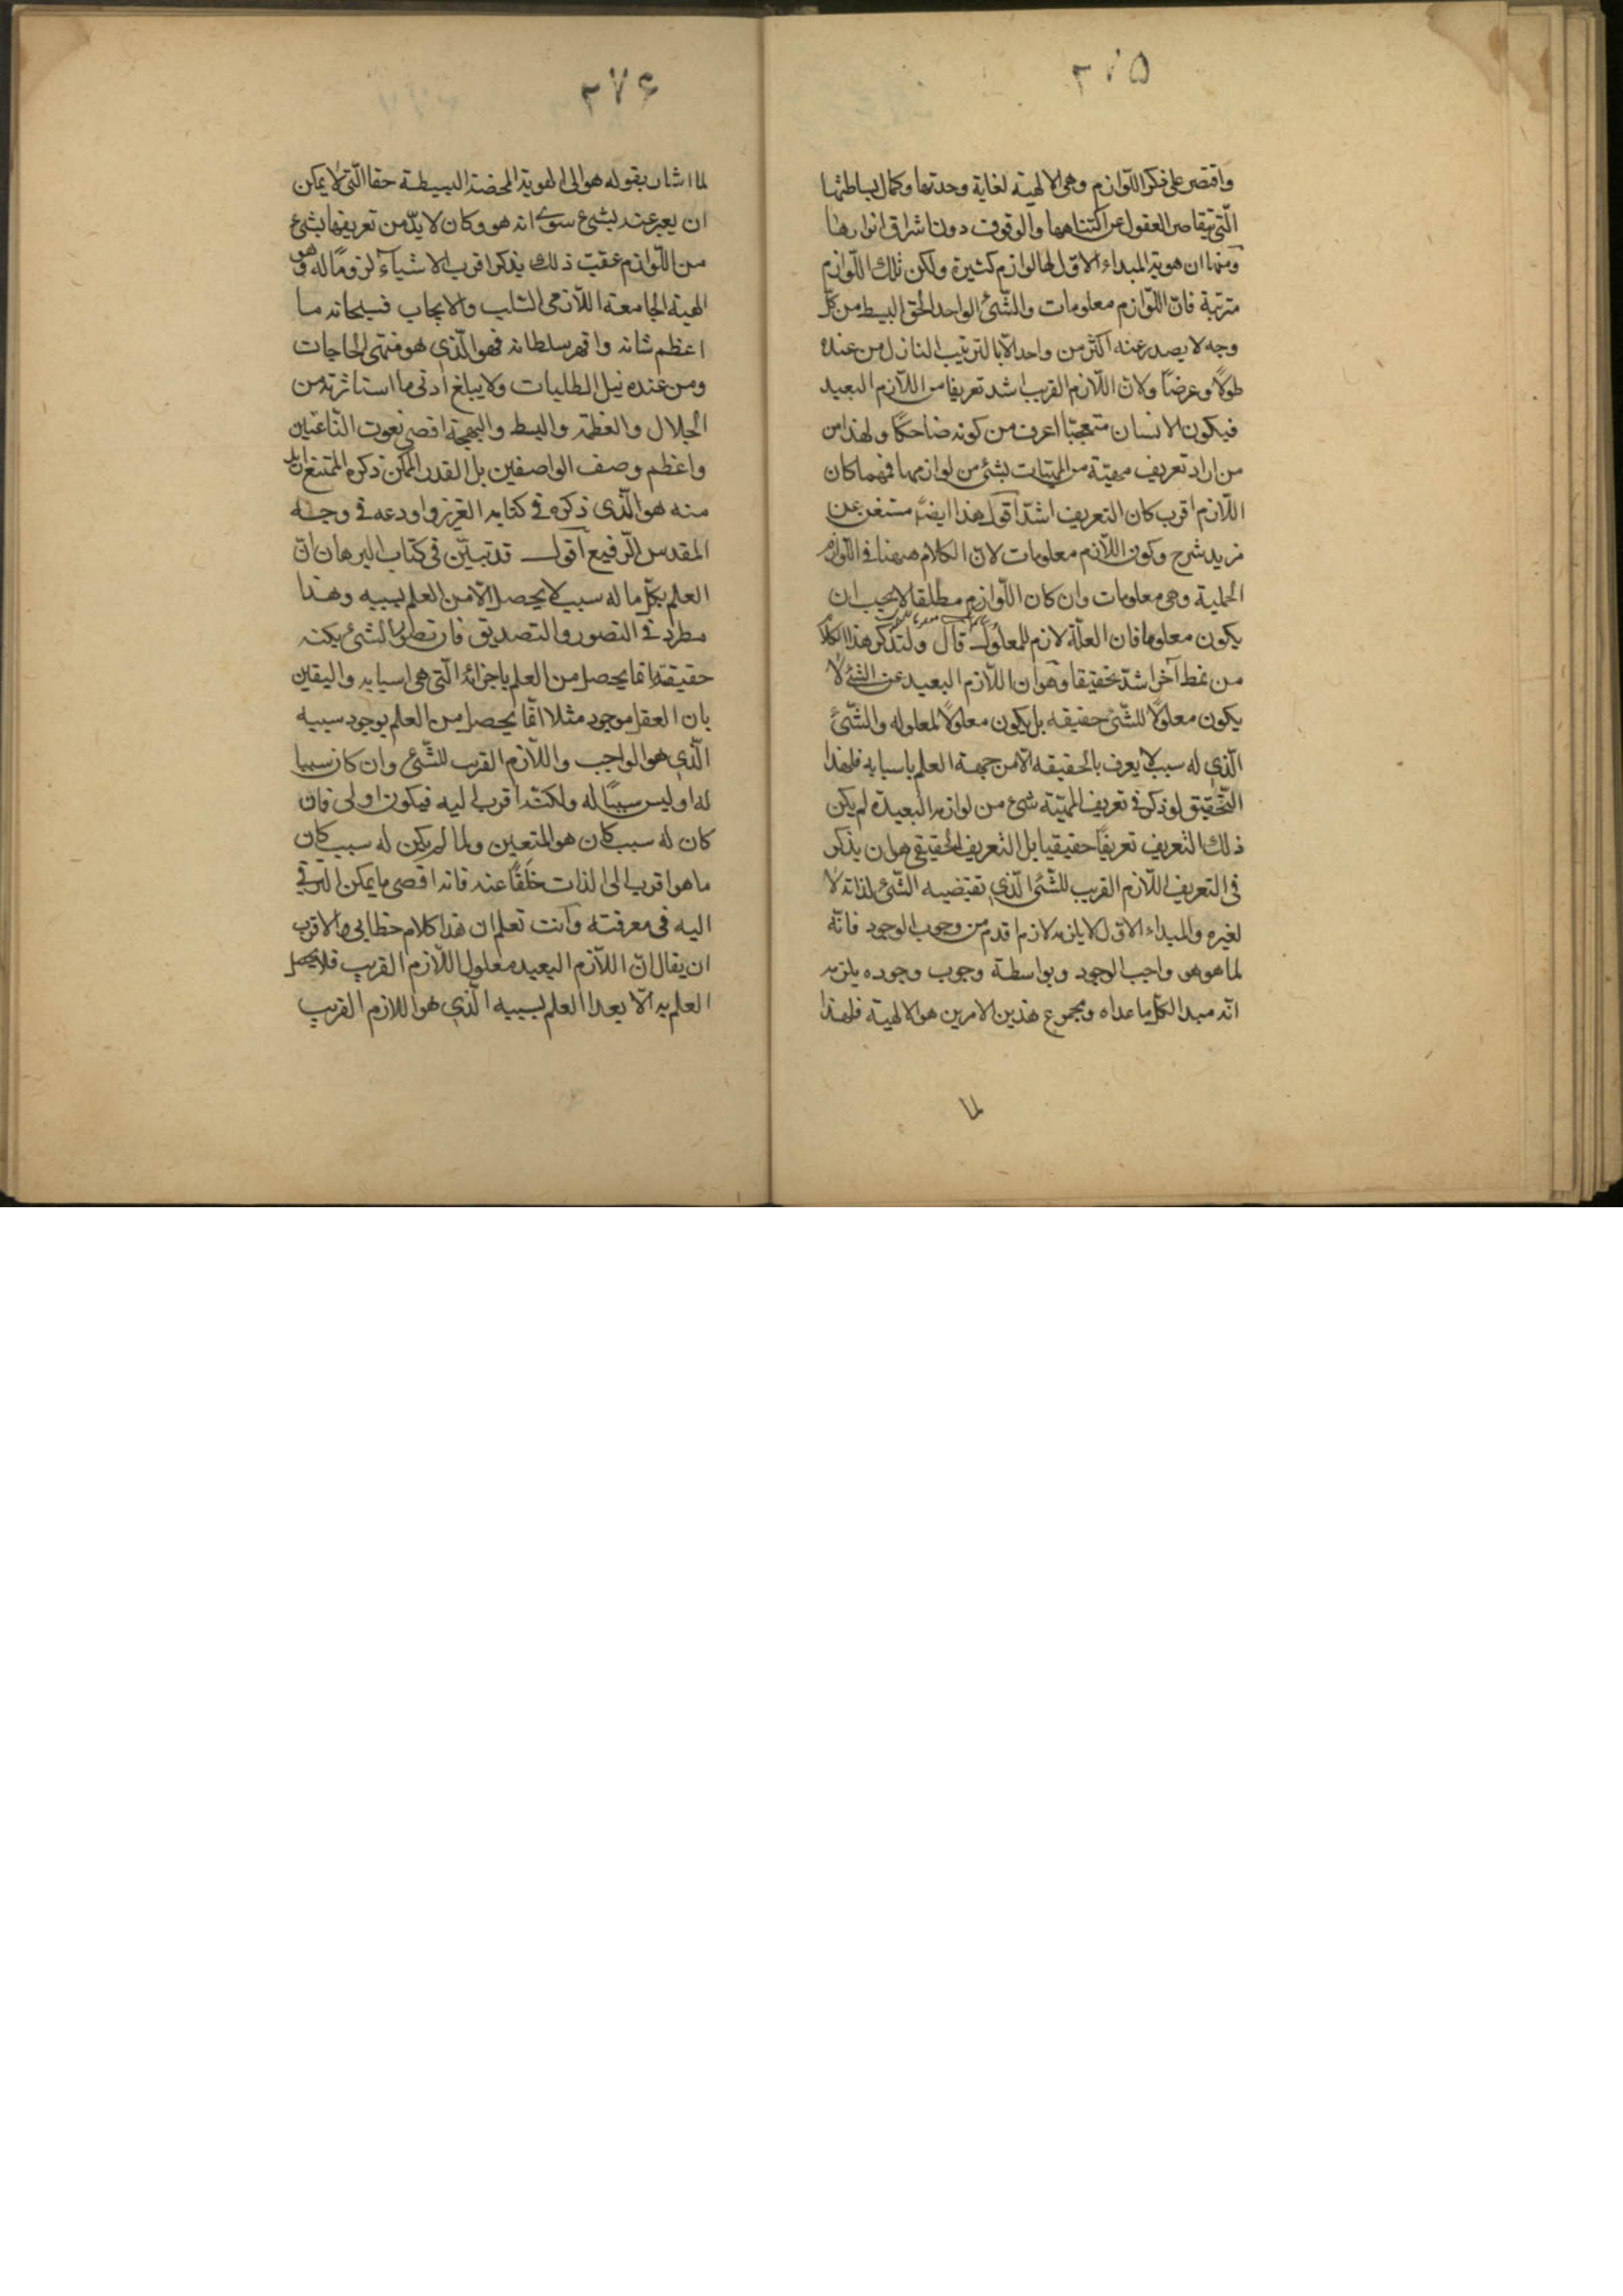 ٢٧٥
واقتصر على ذكر اللّوازم وهى الالهية لغاية وحدتها وكمال بساطتها
الّتى يتقاصر العقول عن اكتناهها والوقوف دون اشراق انوارها
ومنها ان هوية المبداء الاوّل لها لوازم كثيرة ولكن تلك اللّوازم
مترتبة فانّ اللّوازم معلومات والشّئ الواحد الحق البسيط من كلّ
وجه لا يصدر عنه اكثر من واحد الّا بالترتيب النازل من عنده
طولاً وعرضاً ولانّ اللّازم القريب اشد تعريفا من اللّازم البعيد
فيكون الانسان متعجبّا اعرف من كونه ضاحكاً ولهذا من
من اراد تعريف مهيّة من المهيّات بشئ من لوازمها فمهما كان
اللّازم اقرب كان التعريف اشدّ اقول هذا ايضاً مستغن عن
مزيد شرح وكون اللّازم معلومات لانّ الكلام ههنا فى اللّوازم
الحملية وهى معلومات وان كان اللّوازم مطلقا لا يجب ان
يكون معلوما فان العلّة لازم للمعلول قال ولتذكر هذا الكلام
من نمط آخر اشدّ تحقيقا وهو ان اللّازم البعيد عن الشّئ لا
يكون معلولاً للشّئ حقيقه بل يكون معلولاً لمعلوله والشّئ
الّذى له سبب لا يعرف بالحقيقه الّا من جهة العلم باسبابه فلهذا
التّحقيق لو ذكر فى تعريف المهيّة شئ من لوازمه البعيدة لم يكن
ذلك التعريف تعريفاً حقيقيا بل التعريف الحقيقى هو ان يذكر
فى التعريف اللّازم القريب للشّئ الّذى تقتضيه الشّئ لذاته لا
لغيره والمبداء الاوّل لا يلزمه لازم اقدم من وجوب الوجود فانّه
لما هو هو واجب الوجود وبواسطة وجوب وجوده يلزمه
انّه مبدا لكلّ ما عداه ومجموع هذين الامرين هو الالهية فلهذا
لما
٢٧۶
لما اشار بقوله هو الى الهوية المحضة البسيطة حقا الّتى لا يمكن
ان يعبر عنه بشئ سوى انه هو وكان لا بدّ من تعريفها بشئ
من اللّوازم عقيب ذلك بذكر اقرب الاشياء لزوماً له وهو
الهية الجامعة اللّازمى السّلب والايجاب فسبحانه ما
اعظم شانه واقهر سلطانه فهو الّذى هو منتهى الحاجات
ومن عنده نيل الطلبات ولا يبلغ ادنى ما استاثرته من
الجلال والعظمة والبسط والبهجة اقصى نعوت النّاعتين
واعظم وصف الواصفين بل القدر الممكن ذكره الممتنع ازيد
منه هو الّذى ذكره فى كتابه العزيز واودعه فى وحيه
المقدس الرّفيع اقول قد تبيّن فى كتاب البرهان انّ
العلم بكلّ ما له سبب لا يحصل الّا من العلم بسببه وهذا
مطرد فى التصور والتصديق فان تصور الشئ بكنه
حقيقته انّما يحصل من العلم باجزائه الّتى هى اسبابه واليقين
بان العقل موجود مثلا انّما يحصل من العلم بوجود سببه
الّذى هو الواجب واللّازم القريب للشّئ وان كان سببا
له او ليس سبباً له ولكنّه اقرب اليه فيكون اولى فان
كان له سبب كان هو المتعين ولما لم يكن له سبب كان
ما هو اقرب الى الذات خلفاً عنه فانه اقصى ما يمكن الترقى
اليه فى معرفته وانت تعلم ان هذا كلام خطابى والاقرب
ان يقال انّ اللّازم البعيد معلول اللّازم القريب فلا يحصل
العلم به الّا بعد العلم بسببه الّذى هو اللازم القريب